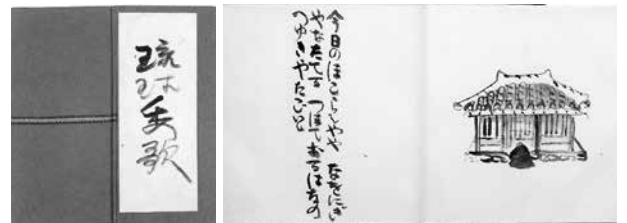 琉球秀歌
今日のほこらしやや なをにぎ
やなたてる つぼでおるはなの
つゆきやたごと